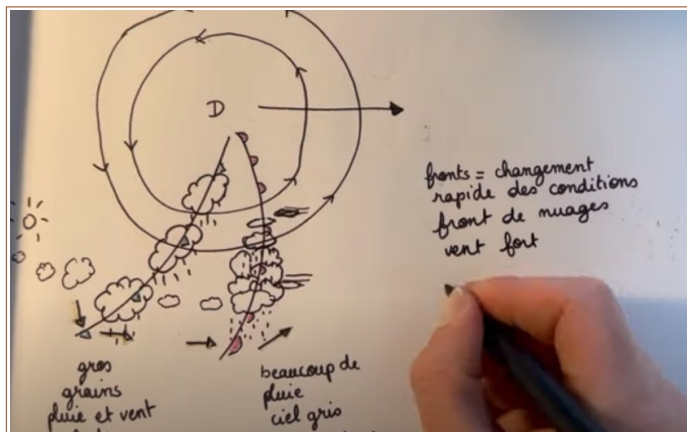 D
fronts = changement
rapide des conditions
front de nuages
vent fort
gros
grains
pluie et vent
beaucoup de
pluie
ciel gris